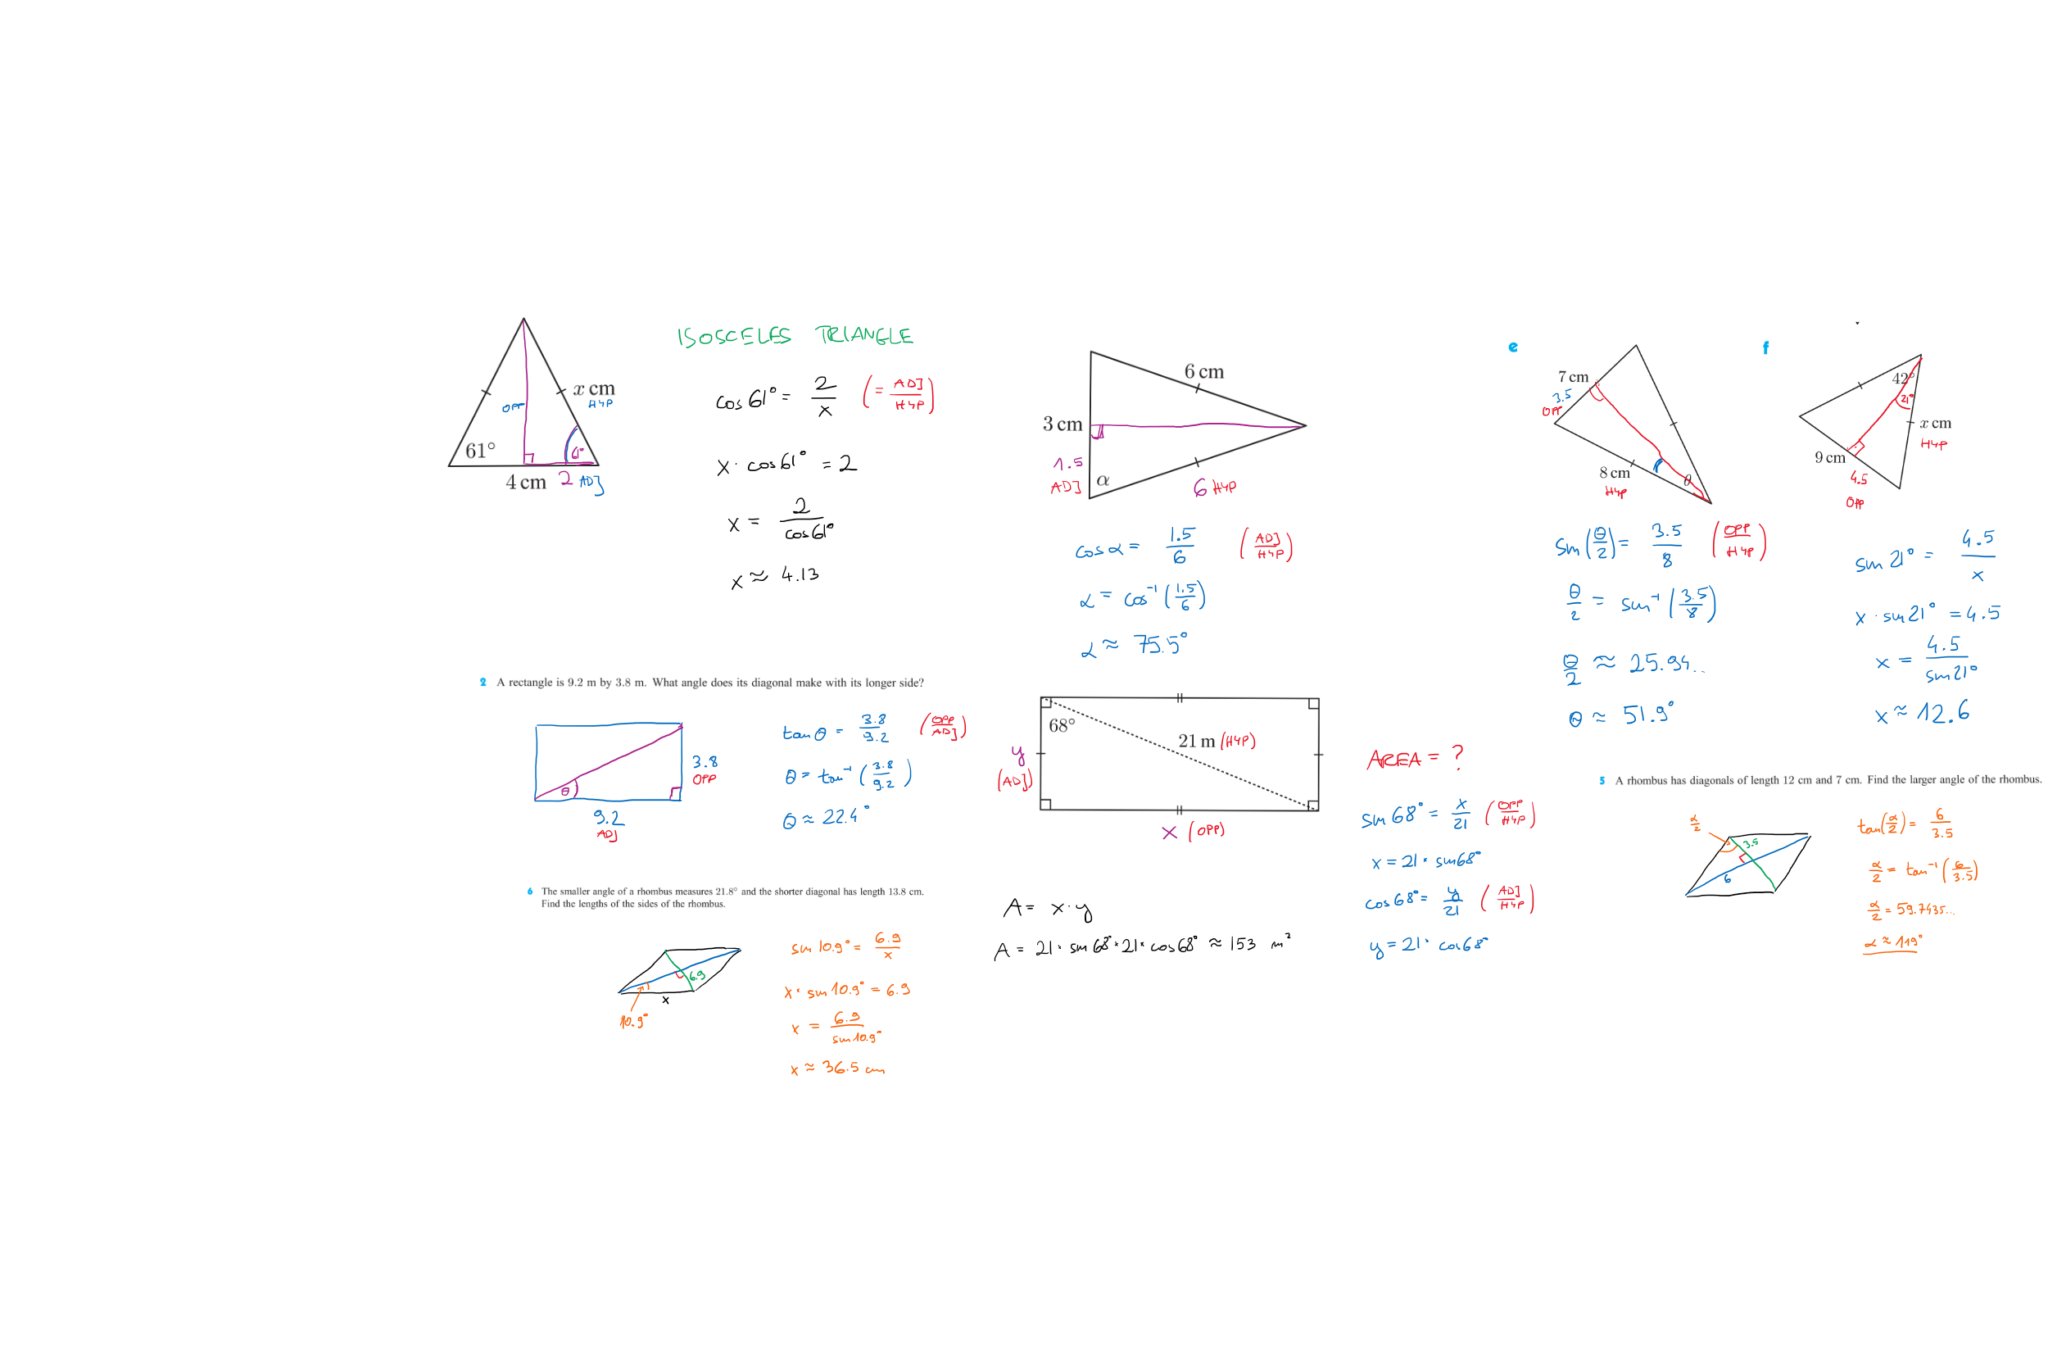 ISOSCELES TRIANGLE
x cm
HYP
OPP
61°
61°
4 cm 2 ADJ
cos 61° = 2/x (= ADJ/HYP)
x · cos 61° = 2
x = 2/cos 61°
x ≈ 4.13
6 cm
3 cm
1.5
ADJ
α
6 HYP
cos α = 1.5/6 (ADJ/HYP)
α = cos⁻¹(1.5/6)
α ≈ 75.5°
e
7 cm
3.5
OPP
8 cm
HYP
θ
sin(θ/2) = 3.5/8 (OPP/HYP)
θ/2 = sin⁻¹(3.5/8)
θ/2 ≈ 25.94..
θ ≈ 51.9°
f
42°
21°
x cm
HYP
9 cm
4.5
OPP
sin 21° = 4.5/x
x · sin 21° = 4.5
x = 4.5/sin 21°
x ≈ 12.6
2 A rectangle is 9.2 m by 3.8 m. What angle does its diagonal make with its longer side?
3.8
OPP
θ
9.2
ADJ
tan θ = 3.8/9.2 (OPP/ADJ)
θ = tan⁻¹(3.8/9.2)
θ ≈ 22.4°
68°
21 m (HYP)
y
(ADJ)
x (OPP)
AREA = ?
sin 68° = x/21 (OPP/HYP)
x = 21 · sin 68°
cos 68° = y/21 (ADJ/HYP)
y = 21 · cos 68°
A = x · y
A = 21 · sin 68° · 21 · cos 68° ≈ 153 m²
5 A rhombus has diagonals of length 12 cm and 7 cm. Find the larger angle of the rhombus.
α/2
3.5
6
tan(α/2) = 6/3.5
α/2 = tan⁻¹(6/3.5)
α/2 = 59.7435...
α ≈ 119°
6 The smaller angle of a rhombus measures 21.8° and the shorter diagonal has length 13.8 cm.
Find the lengths of the sides of the rhombus.
6.9
x
10.9°
sin 10.9° = 6.9/x
x · sin 10.9° = 6.9
x = 6.9/sin 10.9°
x ≈ 36.5 cm